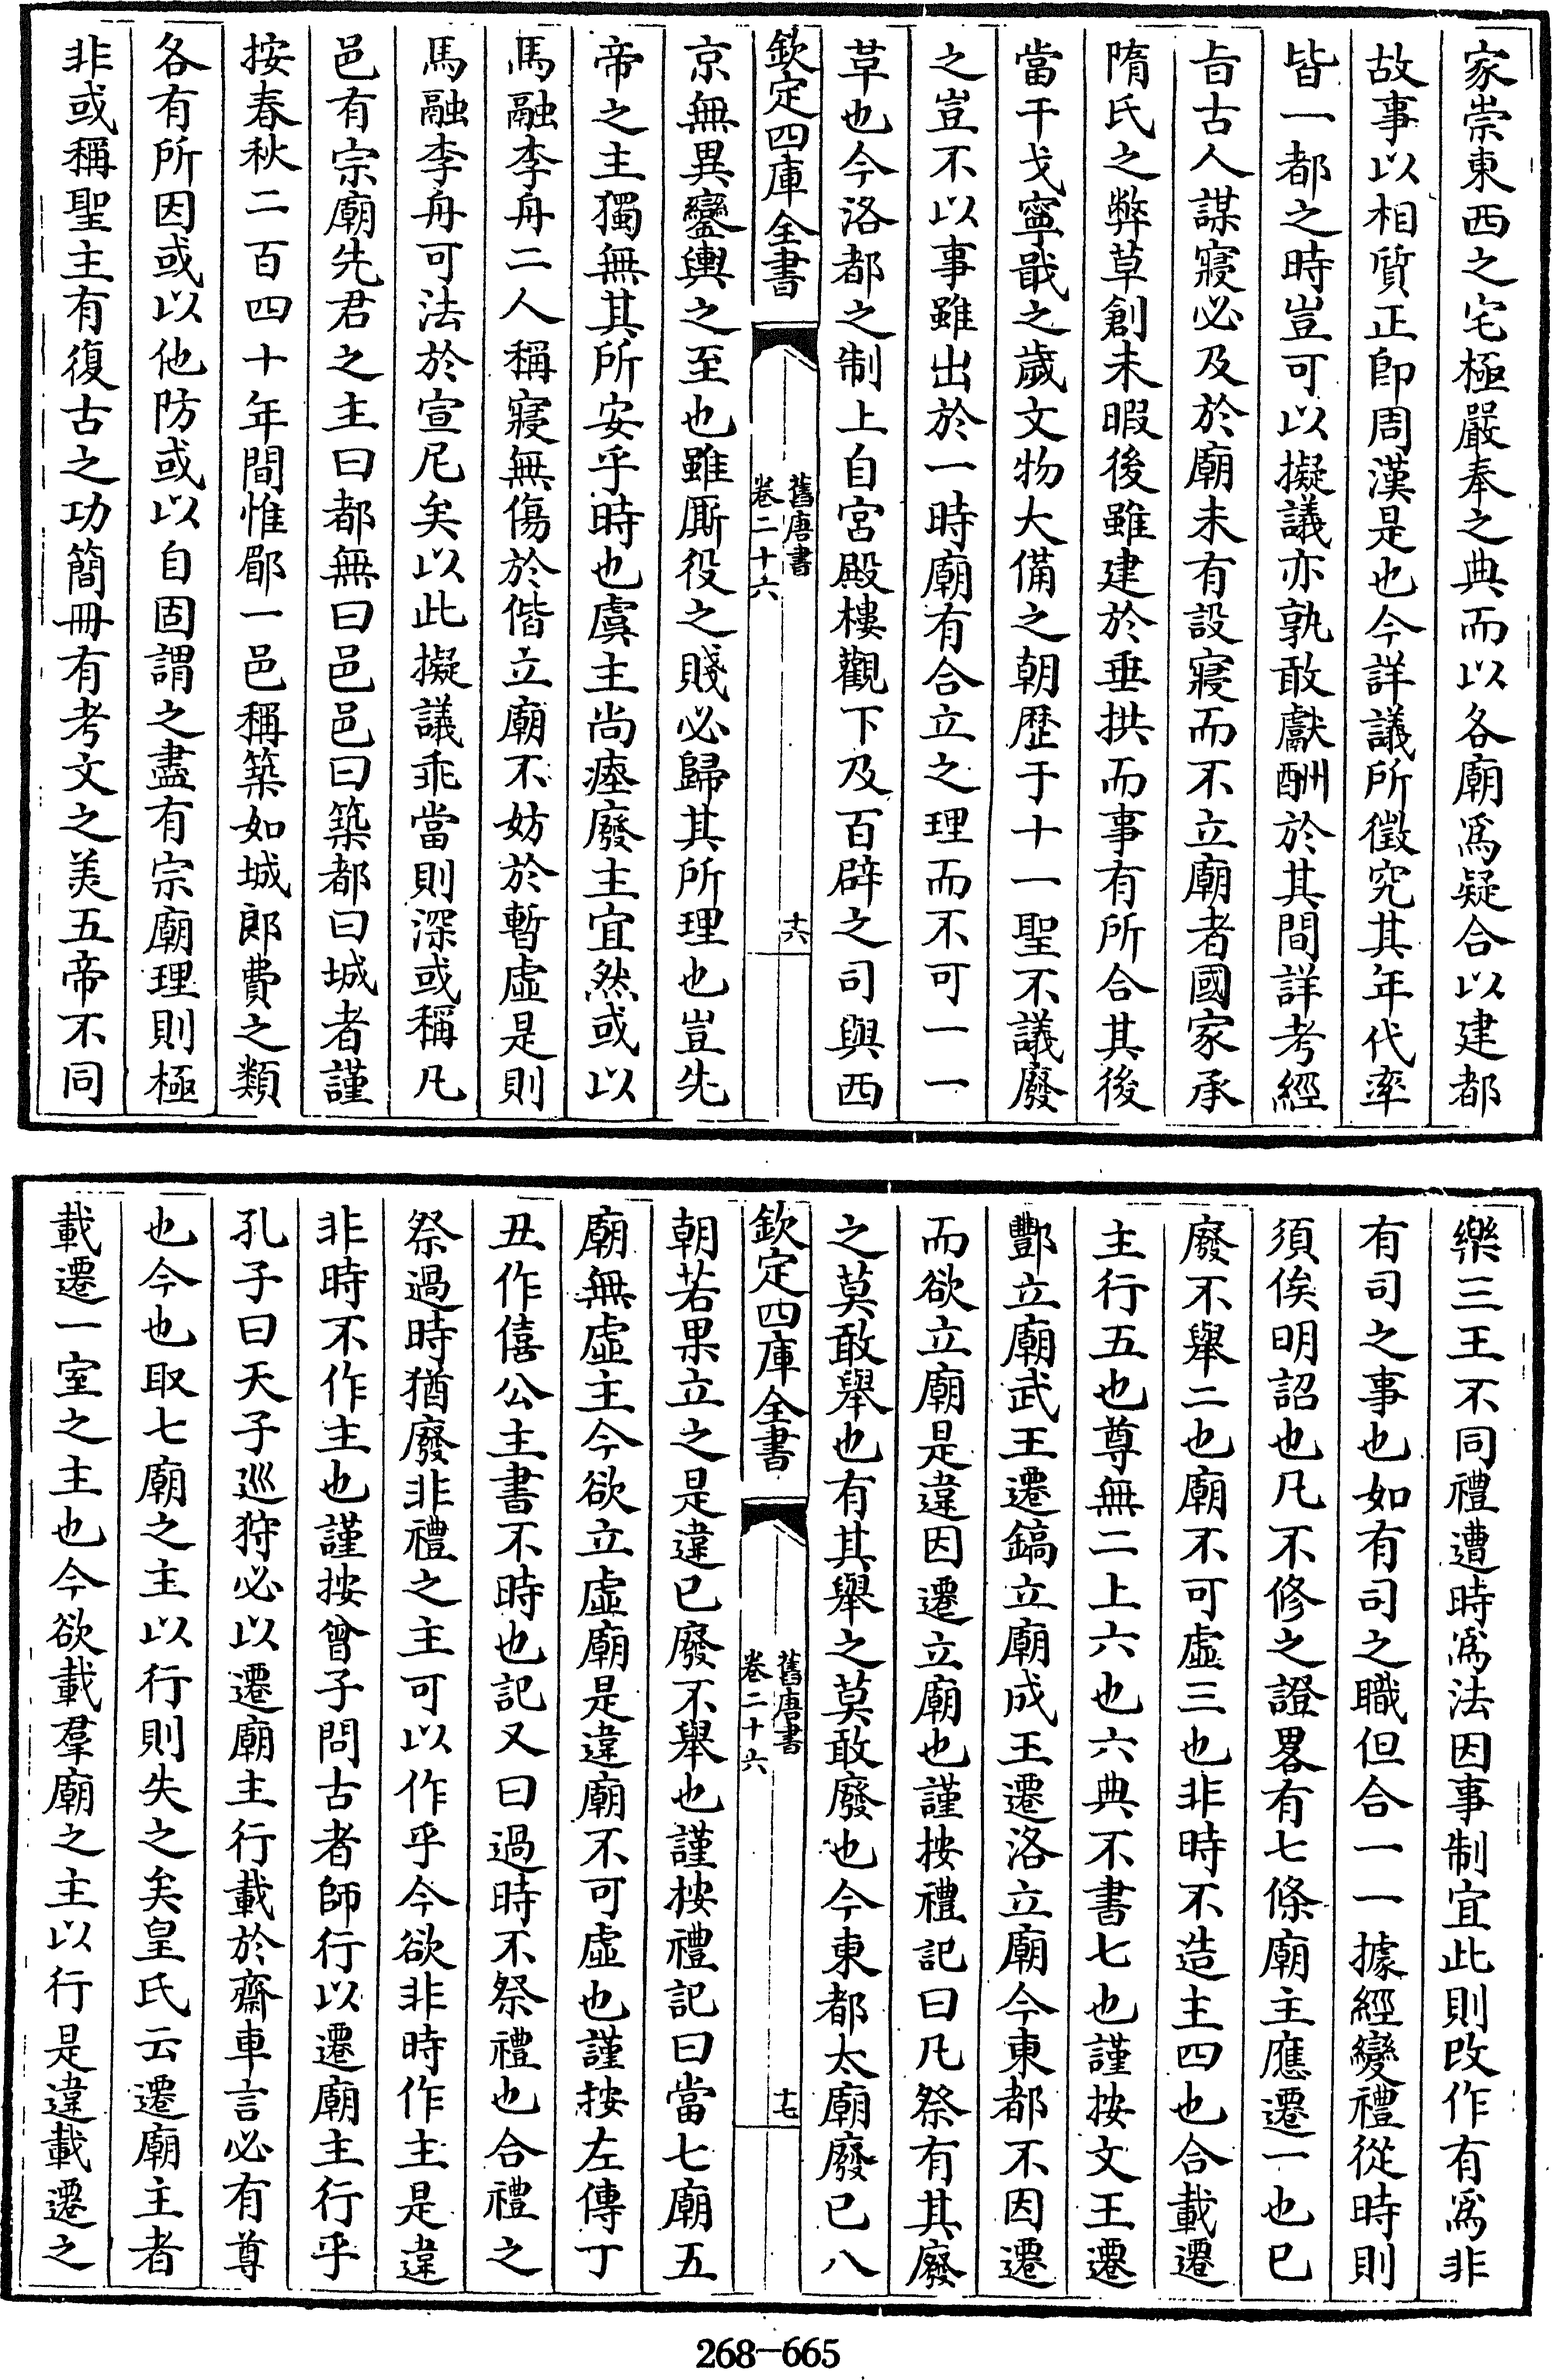 家崇東西之宅極嚴奉之典而以各廟爲疑合以建都
故事以相質正即周漢是也今詳議所徵究其年代率
皆一都之時豈可以擬議亦孰敢獻酬於其間詳考經
㫖古人謀寢必及於廟未有設寢而不立廟者國家承
隋氏之弊草創未暇後雖建於垂拱而事有所合其後
當干戈寧戢之歲文物大備之朝歴于十一聖不議廢
之豈不以事雖出於一時廟有合立之理而不可一一
革也今洛都之制上自宮殿樓觀下及百辟之司與西
欽定四庫全書
舊唐書
卷二十六
十六
京無異鑾輿之至也雖厮役之賤必歸其所理也豈先
帝之主獨無其所安乎時也虞主尚瘞廢主宜然或以
馬融李舟二人稱寢無傷於偕立廟不妨於暫虛是則
馬融李舟可法於宣尼矣以此擬議乖當則深或稱凡
邑有宗廟先君之主曰都無曰邑邑曰築都曰城者謹
按春秋二百四十年間惟郿一邑稱築如城郎費之類
各有所因或以他防或以自固謂之盡有宗廟理則極
非或稱聖主有復古之功簡冊有考文之美五帝不同
樂三王不同禮遭時爲法因事制宜此則改作有爲非
有司之事也如有司之職但合一一據經變禮從時則
須俟明詔也凡不修之證畧有七條廟主應遷一也已
廢不舉二也廟不可虛三也非時不造主四也合載遷
主行五也尊無二上六也六典不書七也謹按文王遷
酆立廟武王遷鎬立廟成王遷洛立廟今東都不因遷
而欲立廟是違因遷立廟也謹按禮記曰凡祭有其廢
之莫敢舉也有其舉之莫敢廢也今東都太廟廢已八
欽定四庫全書
舊唐書
卷二十六
十七
朝若果立之是違已廢不舉也謹按禮記曰當七廟五
廟無虛主今欲立虛廟是違廟不可虛也謹按左傳丁
丑作僖公主書不時也記又曰過時不祭禮也合禮之
祭過時猶廢非禮之主可以作乎今欲非時作主是違
非時不作主也謹按曾子問古者師行以遷廟主行乎
孔子曰天子巡狩必以遷廟主行載於齋車言必有尊
也今也取七廟之主以行則失之矣皇氏云遷廟主者
載遷一室之主也今欲載羣廟之主以行是違載遷之
268-665